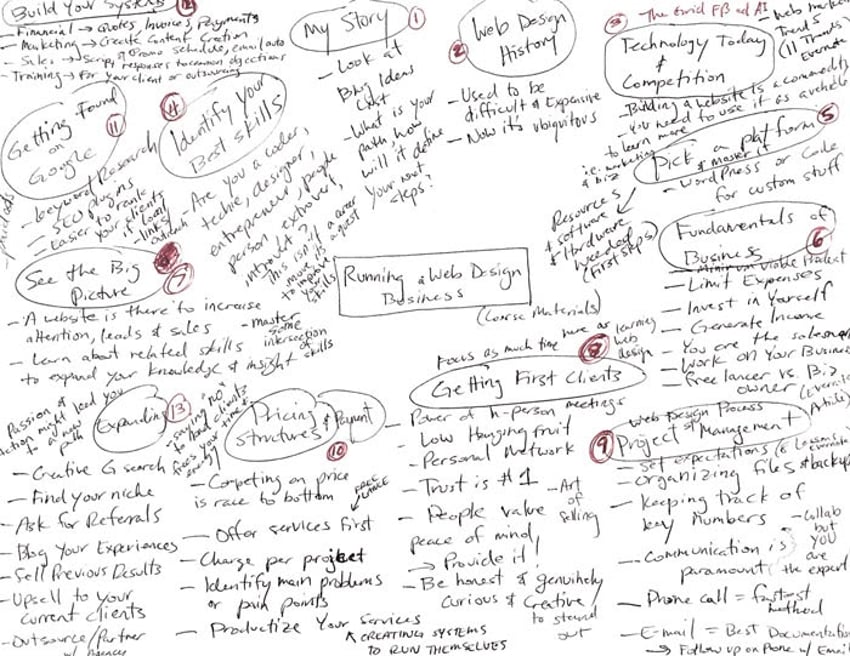 Build Your Systems 12
- Financial → Quotes, Invoices, Payments
- Marketing → Create Content Creation
- Sales → Script & Promo schedules, email auto
responses to common objections
- Training → For your client or outsourcing
My Story 1
- Look at
Blog Ideas
List
- What is your
path how
will it define
your next
steps?
2 Web Design
History
- Used to be
difficult & Expensive
- Now it's ubiquitous
3 The Grid FB ad AI
Technology Today
&
Competition
- Web market
Trends
(11 Trends
Evernote
- Building a website is a commodity
- You need to use it as a vehicle
to learn more
i.e. marketing
& biz
Pick a platform 5
& master it
- WordPress or Code
for custom stuff
Resources
& software
& Hardware
Needed
(First Steps)
4
Identify Your
Best skills
- Are you a coder,
techie, designer,
entrepreneur, people
person, extrovert,
introvert?
This isn't a career
move it's a quest
to improve
your
skills
Getting Found
on
Google
11
- Keyword Research
- SEO plugins
- Easier to rank
your clients
if local
- links
outreach
- paid ads
See the Big
Picture
7
- A website is there to increase
attention, leads & sales
- Learn about related skills
to expand your knowledge & insight
- master
some
intersection
of skills
Running a Web Design
Business
(Course Materials)
Fundamentals of
Business 6
- Minimum Viable Product
- Limit Expenses
- Invest in Yourself
- Generate Income
- You are the salesman
- Work ON Your Business
- freelancer vs. Biz
owner (Evernote
Article)
Focus as much time here as learning
web
design
8
Getting First Clients
- Power of in-person meetings
- Low Hanging fruit
- Personal Network
- Trust is #1
- People value
peace of mind,
→ Provide it!
- Be honest & genuinely
curious & Creative
to stand
out
- Art
of
selling
Web Design Process
9 Project & Management
- Set expectations
- organizing files & backup
- Keeping track of
key numbers
- Communication is
paramount
- Collab
but
YOU
are
the expert
- Phone call = fastest
method
- E-mail = Best Documentation
→ Follow up on Phone w/ Email
Expanding 13
- Passion &
action might lead you
to a new
path
- Creative G search
- Find your niche
- Ask for Referrals
- Blog Your Experiences
- Sell Previous Results
- Upsell to your
current clients
- Outsource/Partner
w/ Agencies
Pricing & Payment
Structures
10
- saying "NO"
to bad clients
frees your time &
energy
- Competing on price
is race to bottom
FREE
LANCE
- Offer services first
- Charge per project
- Identify main problems
or pain points
- Productize Your Services
CREATING SYSTEMS
TO RUN THEMSELVES